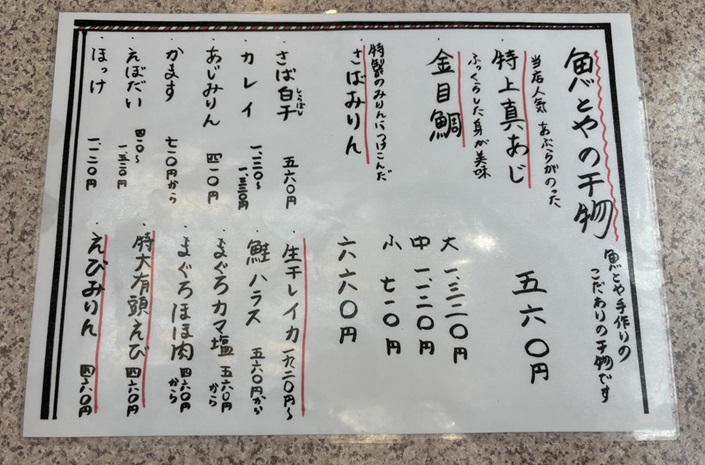 魚とやの干物
魚とや手作りの
こだわりの干物です
当店人気 あぶらがのった
特上真あじ 五六〇円
ふっくらした身が美味
金目鯛
大 一、三二〇円
中 一、一二〇円
小 七一〇円
特製のみりんにつけこんだ
さばみりん 六六〇円
さば白干 五六〇円
しらぼし
カレイ
あじみりん 四一〇円
かます 七一〇円から
えぼだい
ほっけ 一、一二〇円
生干しイカ 一、九二〇円〜
鮭ハラス 五六〇円から
まぐろカマ塩 五六〇円から
まぐろほほ肉 四六〇円から
特大有頭えび 四六〇円
えびみりん 四六〇円